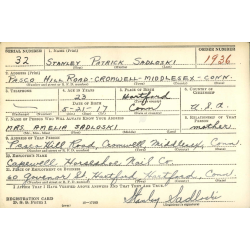 SERIAL NUMBER 1. NAME (Print) ORDER NUMBER
32 STANLEY PATRICK SADLOSKI 1936
2. ADDRESS (Print)
PASCO HILL ROAD-CROMWELL-MIDDLESEX-CONN.
3. TELEPHONE 4. AGE IN YEARS 5. PLACE OF BIRTH 6. COUNTRY OF CITIZENSHIP
23 Hartford
DATE OF BIRTH
5-21-17 Conn U.S.A.
7. NAME OF PERSON WHO WILL ALWAYS KNOW YOUR ADDRESS 8. RELATIONSHIP OF THAT PERSON
MRS. AMELIA SADLOSKI mother
9. ADDRESS OF THAT PERSON
Pasco Hill Road, Cromwell, Middlesex, Conn.
10. EMPLOYER'S NAME
Capewell Horseshoe Nail Co.
11. PLACE OF EMPLOYMENT OR BUSINESS
60 Governor St Hartford, Hartford, Conn.
I AFFIRM THAT I HAVE VERIFIED ABOVE ANSWERS AND THAT THEY ARE TRUE.
REGISTRATION CARD
D. S. S. FORM 1 Stanley Sadloski